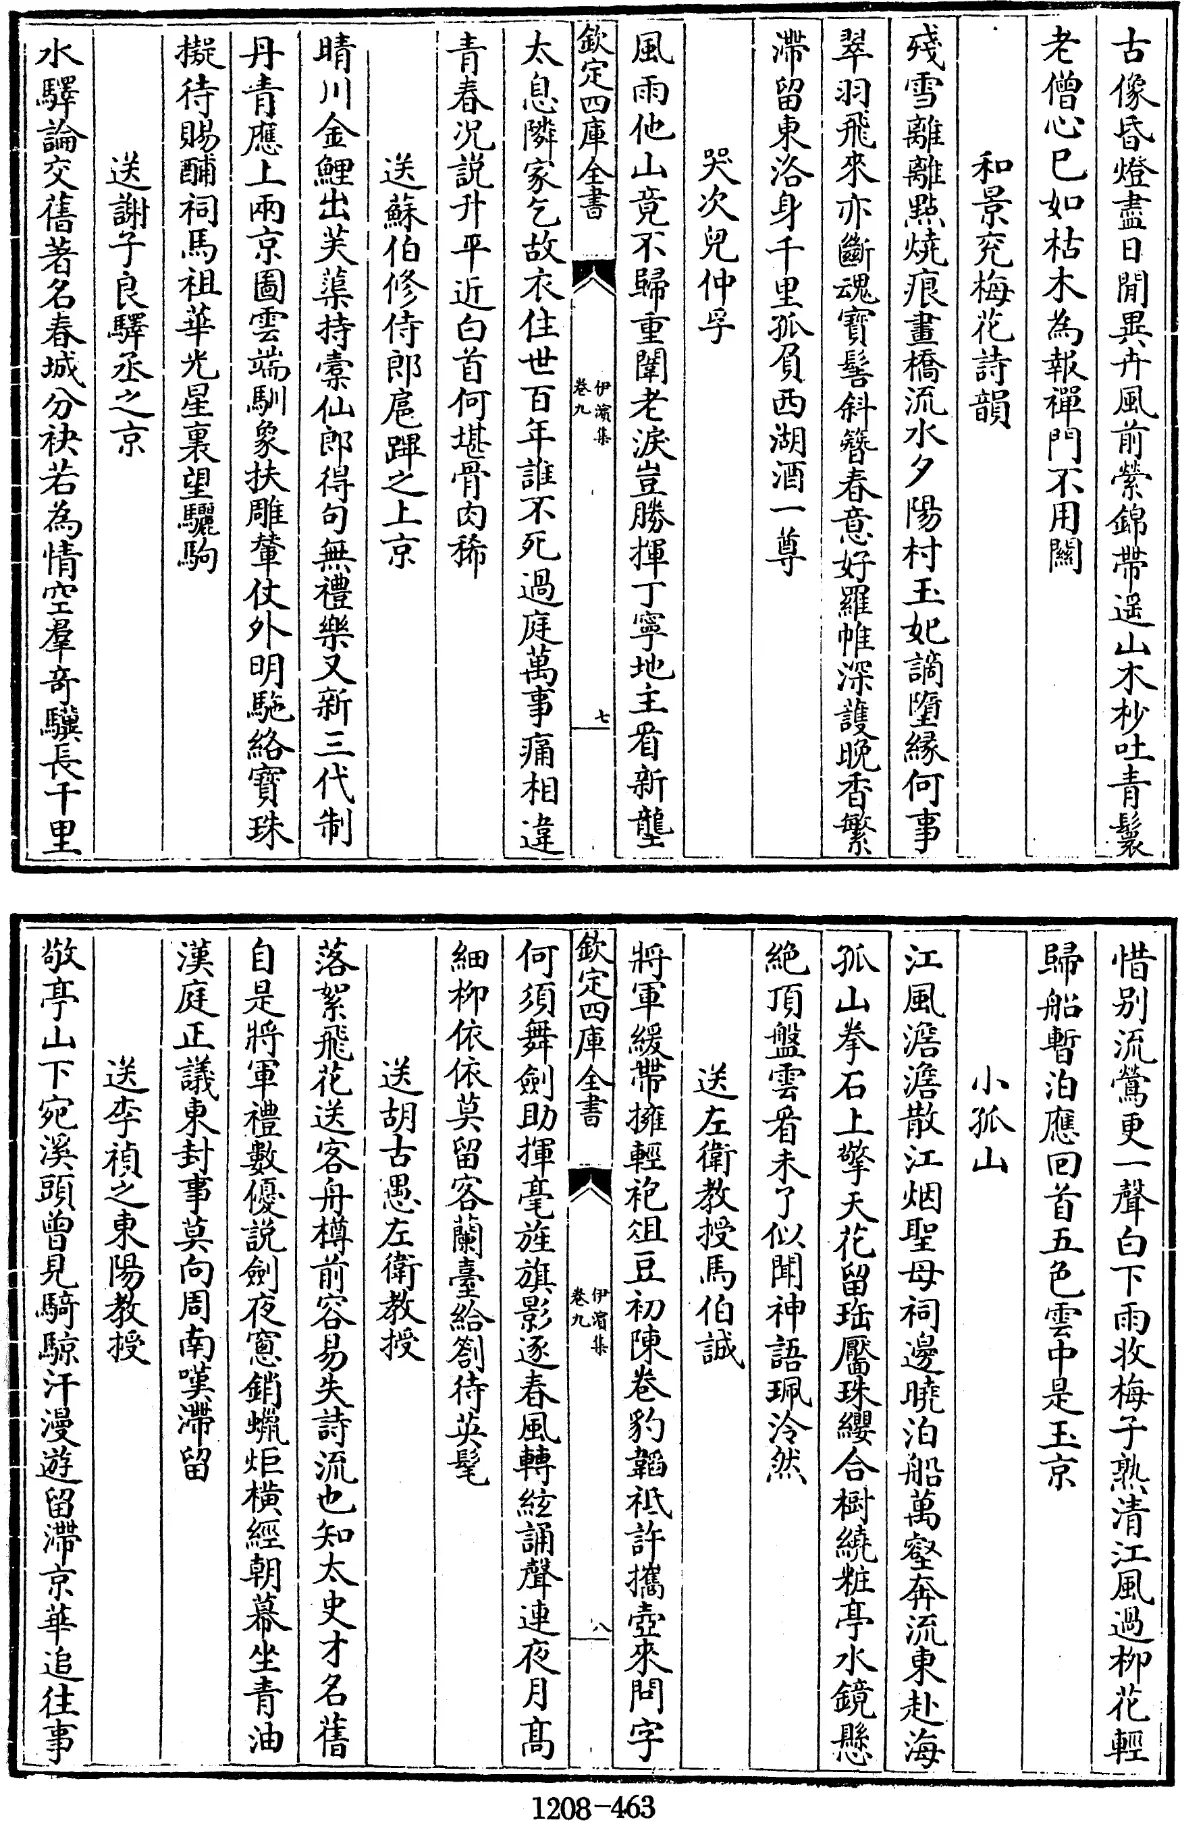 古像昏燈盡日閒異卉風前縈錦帶遥山木杪吐青鬟
老僧心已如枯木為報禪門不用關
和景究梅花詩韻
殘雪離離點燒痕畫橋流水夕陽村玉妃謫墮縁何事
翠羽飛來亦斷魂寶髻斜簪春意好羅帷深護晩香繁
滯留東洛身千里孤負西湖酒一尊
哭次兒仲孚
風雨他山竟不歸重闈老淚豈勝揮丁寧地主看新壟
欽定四庫全書
伊濱集
卷九
七
太息隣家乞故衣住世百年誰不死過庭萬事痛相違
青春况説升平近白首何堪骨肉稀
送蘇伯修侍郎扈蹕之上京
晴川金鯉出芙蕖持槖仙郎得句無禮樂又新三代制
丹青應上兩京圖雲端馴象扶雕輦仗外明駞絡寶珠
擬待賜酺祠馬祖華光星裏望驪駒
送謝子良驛丞之京
水驛論交舊著名春城分袂若為情空羣竒驥長千里
惜别流鶯更一聲白下雨收梅子熟清江風過柳花輕
歸船暫泊應回首五色雲中是玉京
小孤山
江風澹澹散江烟聖母祠邊曉泊船萬壑奔流東赴海
孤山拳石上擎天花留珤靨珠纓合樹繞粧亭水鏡懸
絶頂盤雲看未了似聞神語珮泠然
送左衛教授馬伯誠
將軍緩帶擁輕袍俎豆初陳卷豹韜祇許攜壺來問字
欽定四庫全書
伊濱集
卷九
八
何須舞劍助揮毫旌旗影逐春風轉絃誦聲連夜月髙
細柳依依莫留客蘭臺給劄待英髦
送胡古愚左衛教授
落絮飛花送客舟樽前容易失詩流也知太史才名舊
自是將軍禮數優説劍夜窻銷蠟炬橫經朝幕坐青油
漢庭正議東封事莫向周南嘆滯留
送李禎之東陽教授
敬亭山下宛溪頭曾見騎鯨汗漫遊留滯京華追往事
1208-463